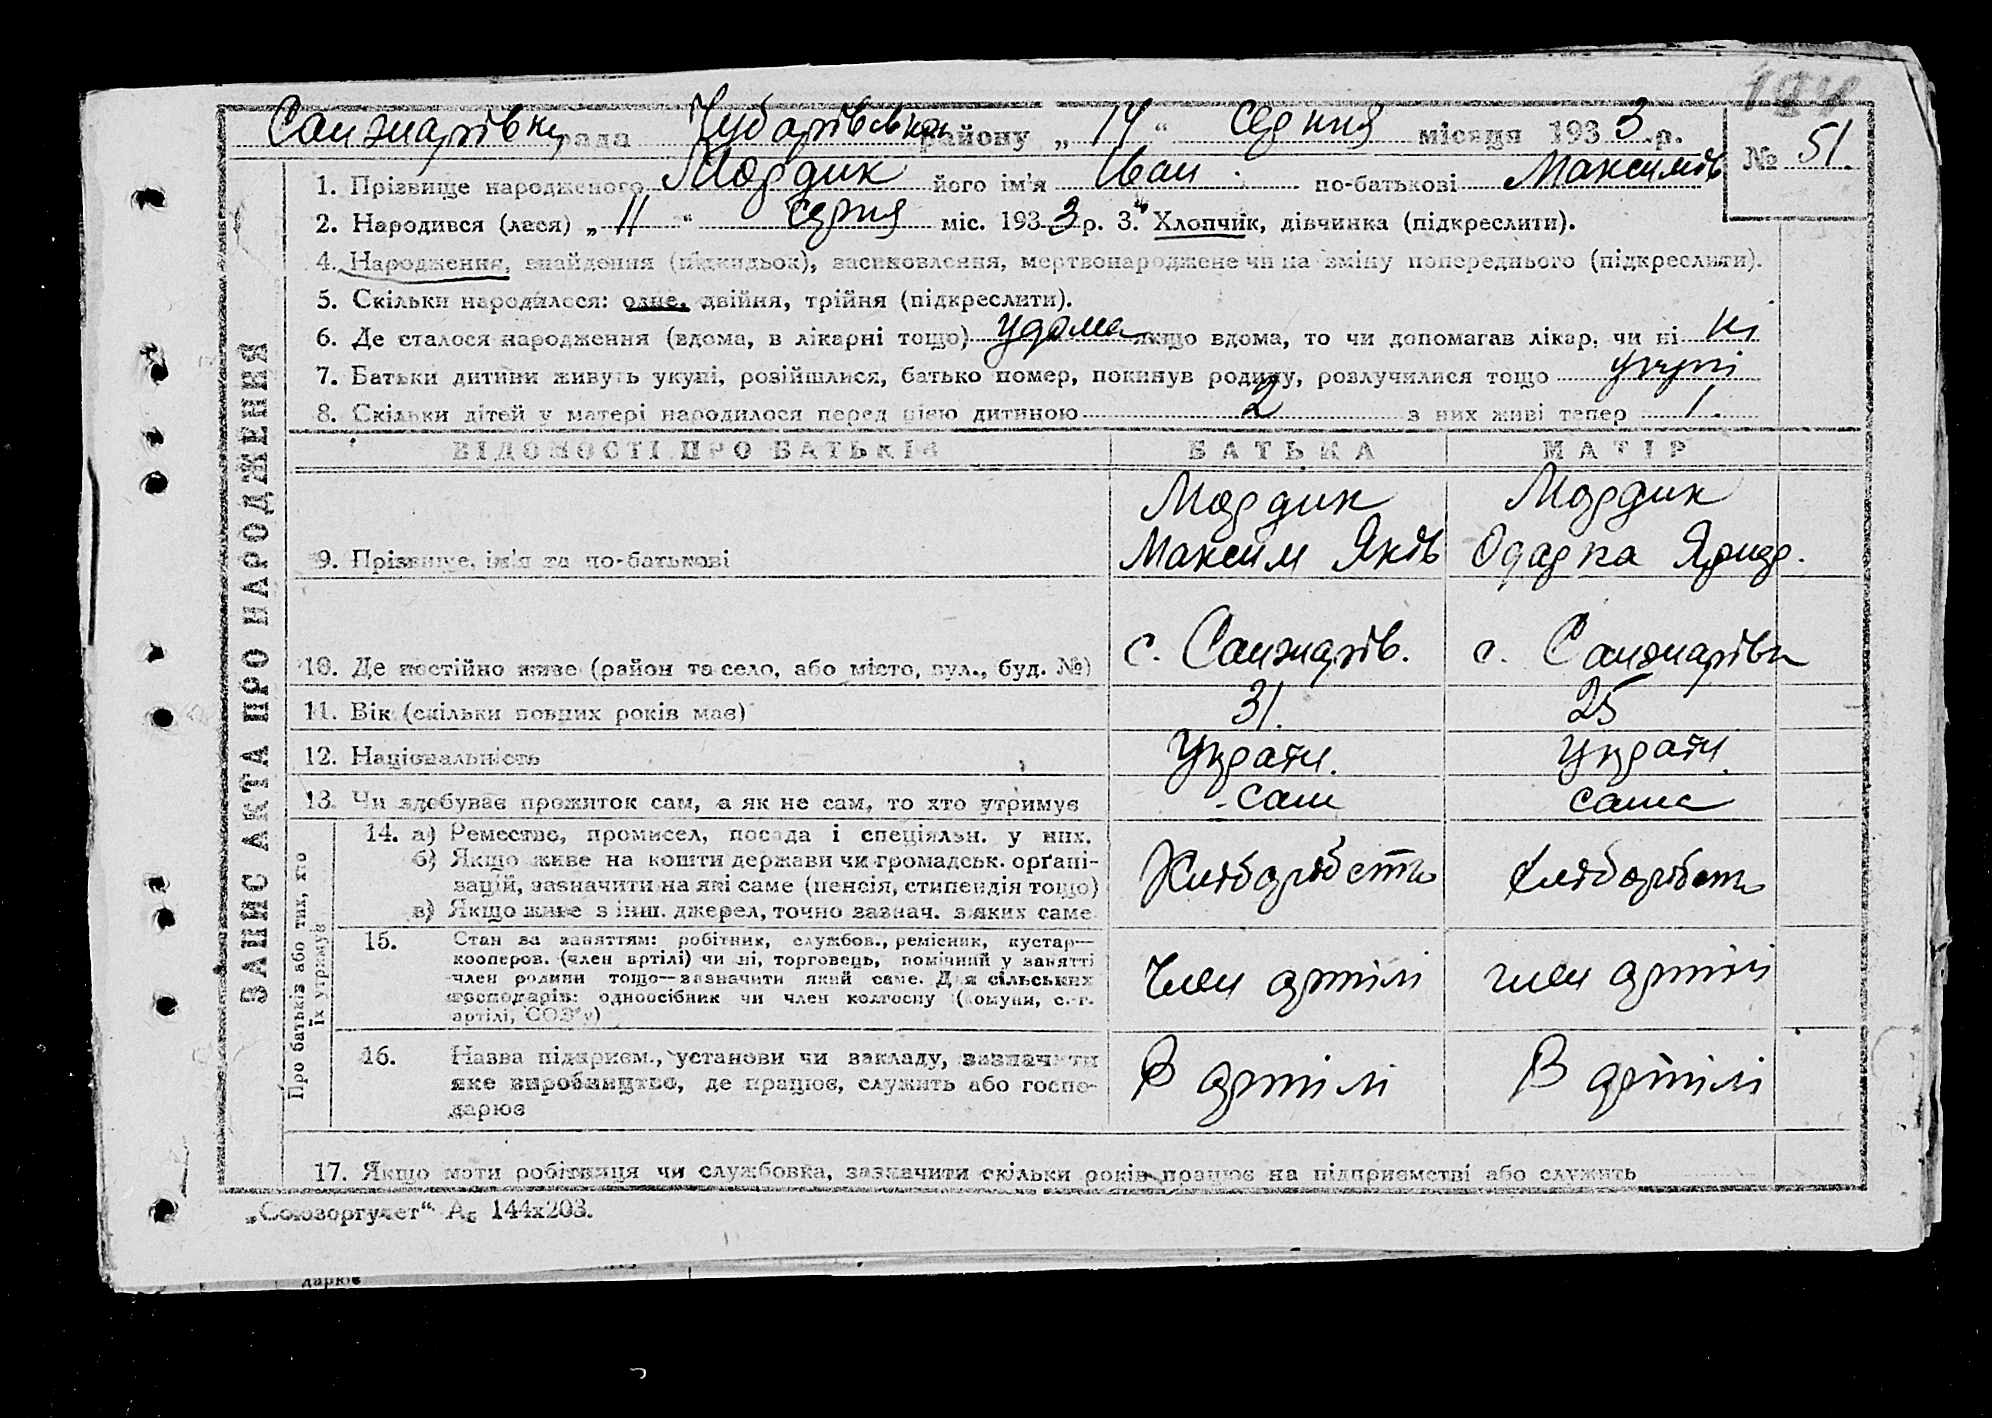 Санжарівка рада Чубарівськ району „ 14 “ серпня місяця 193 3 р.
№ 51
1. Прізвище народженого Мордик його ім'я Іван по-батькові Максимов
2. Народився (лася) „ 11 “ серпня міс. 193 3 р. 3. Хлопчик, дівчинка (підкреслити).
4. Народження, знайдення (підкидьок), засиновлення, мертвонароджене чи на зміну попереднього (підкреслити).
5. Скільки народилося: одне, двійня, трійня (підкреслити).
6. Де сталося народження (вдома, в лікарні тощо) удома якщо вдома, то чи допомагав лікар, чи ні ні
7. Батьки дитини живуть укупі, розійшлися, батько помер, покинув родину, розлучилися тощо укупі
8. Скільки дітей у матері народилося перед цією дитиною 2 з них живі тепер 1.
ЗАПИС АКТА ПРО НАРОДЖЕННЯ
ВІДОМОСТІ ПРО БАТЬКІВ БАТЬКА МАТІР
Мордик Мордик
9. Прізвище, ім'я та по-батькові Максим Яків Одарка
10. Де постійно живе (район та село, або місто, вул., буд. №) с. Санжарів. с. Санжарівка
11. Вік (скільки повних років має) 31. 25
12. Національність Україн. Україн.
13. Чи здобуває прожиток сам, а як не сам, то хто утримує сам сама
Про батьків або тих, хто
їх утримує
14. а) Ремество, промисел, посада і спеціяльн. у них.
б) Якщо живе на кошти держави чи громадськ. орґані-
зацій, зазначити на які саме (пенсія, стипендія тощо)
в) Якщо живе з інш. джерел, точно зазнач. з яких саме
Хліборобств Хліборобств
15. Стан за заняттям: робітник, службов., ремісник, кустар—
кооперов. (член артілі) чи ні, торговець, помічний у занятті
член родини тощо—зазначити який саме. Для сільських
господарів: одноосібник чи член колгоспу (комуни, с.-г.
артілі, СОЗ'у)
Член артілі член артілі
16. Назва підприєм., установи чи закладу, зазначити
яке виробництво, де працює, служить або госпо-
дарює
В артілі В артілі
17. Якщо мати робітниця чи службовка, зазначити скільки років працює на підприємстві або служить
„Союзоргучет“ А₅ 144х203.
дарює